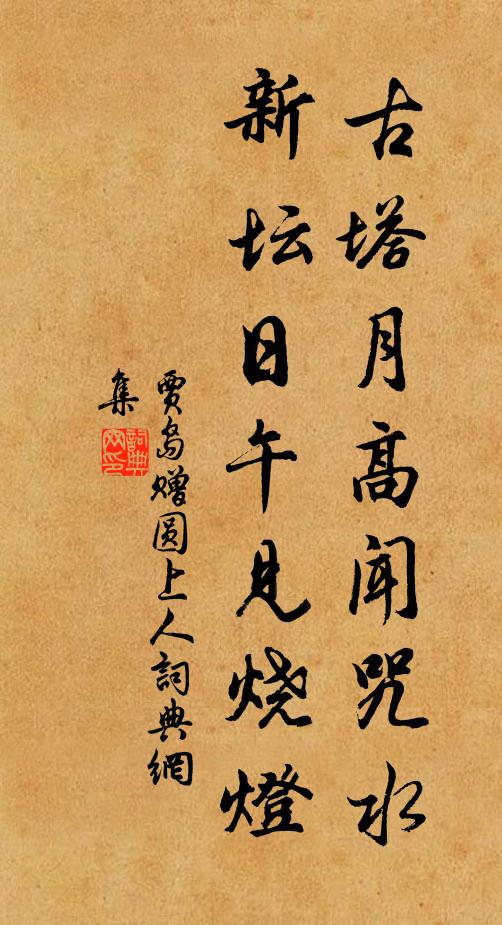 古塔月高闻咒水
新坛日午见烧燈
贾岛赠圆上人詞典網
集
詞典网印